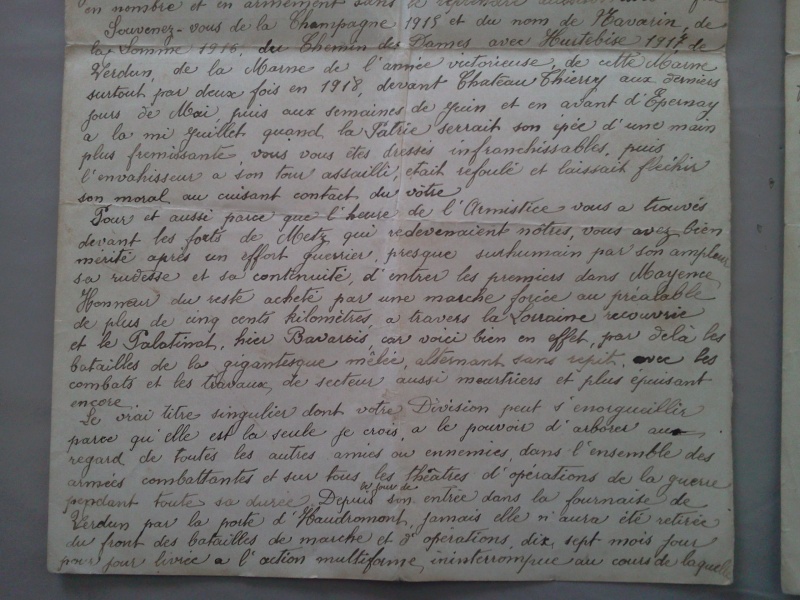 en nombre et en armement sans
Souvenez-vous de la Champagne 1915 et du nom de Navarin, de
la Somme 1916, du Chemin des Dames avec Hurtebise 1917, de
Verdun, de la Marne de l'année victorieuse, de cette Marne
surtout par deux fois en 1918, devant Chateau Thierry aux derniers
jours de Mai, puis aux semaines de juin et en avant d'Epernay
a la mi juillet quand la Patrie serrait son épée d'une main
plus fremissante, vous vous êtes dressés infranchissables, puis
l'envahisseur a son tour assailli, etait refoulé et laissait fléchir
son moral au cuisant contact du vôtre
Pour et aussi parce que l'heure de l'Armistice vous a trouvés
devant les forts de Metz qui redevenaient nôtres, vous avez bien
mérité après un effort guerrier, presque surhumain par son ampleur
sa rudesse et sa continuité, d'entrer les premiers dans Mayence
Honneur du reste acheté par une marche forcée au préalable
de plus de cinq cents kilomètres, a travers la Lorraine recouvrée
et le Palatinat, hier Bavarois, car voici bien en effet, par delà les
batailles de la gigantesque mêlée, alternant sans répit, avec les
combats et les travaux de secteur aussi meurtriers et plus épuisant
encore
Le vrai titre singulier dont votre Division peut s'enorgueillir
parce qu'elle est la seule je crois, a le pouvoir d'arborer au
regard de toutes les autres amies ou ennemies, dans l'ensemble des
armées combattantes et sur tous les théâtres d'opérations de la guerre
pendant toute sa durée. Depuis le jour de son entrée dans la fournaise de
Verdun par la porte d'Haudromont, jamais elle n'aura été retirée
du front des batailles de marche et d'opérations, dix sept mois jour
pour jour livrée a l'action multiforme, ininterrompue au cours de laquelle